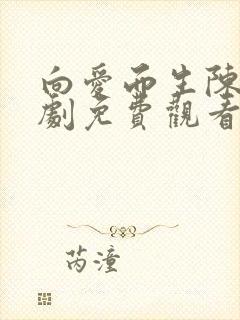 向愛而生陳
劇免費觀看
芮潼